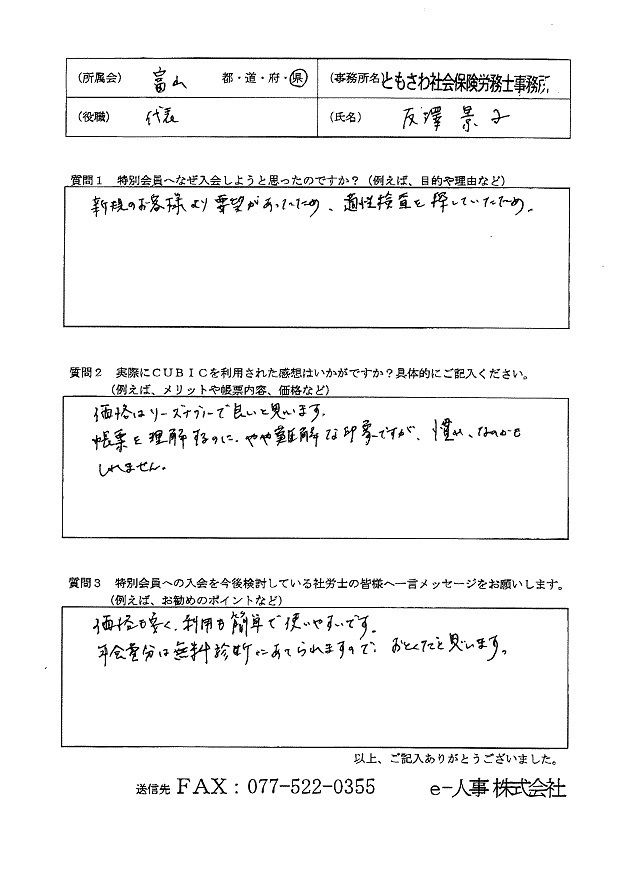 (所属会) 富山 都・道・府・県 (事務所名)ともさわ社会保険労務士事務所
(役職) 代表 (氏名) 友澤 景子
質問1 特別会員へなぜ入会しようと思ったのですか?(例えば、目的や理由など)
新規のお客様より要望があったため、適性検査を探していたため。
質問2 実際にCUBICを利用された感想はいかがですか?具体的にご記入ください。
(例えば、メリットや帳票内容、価格など)
価格はリーズナブルで良いと思います。
帳票を理解するのに、やや難解な印象ですが、慣れ、なのかも
しれません。
質問3 特別会員への入会を今後検討している社労士の皆様へ一言メッセージをお願いします。
(例えば、お勧めのポイントなど)
価格も安く、利用も簡単で使いやすいです。
年会費分は無料診断にあてられますので、おとくだと思います。
以上、ご記入ありがとうございました。
送信先 FAX:077-522-0355 e-人事株式会社